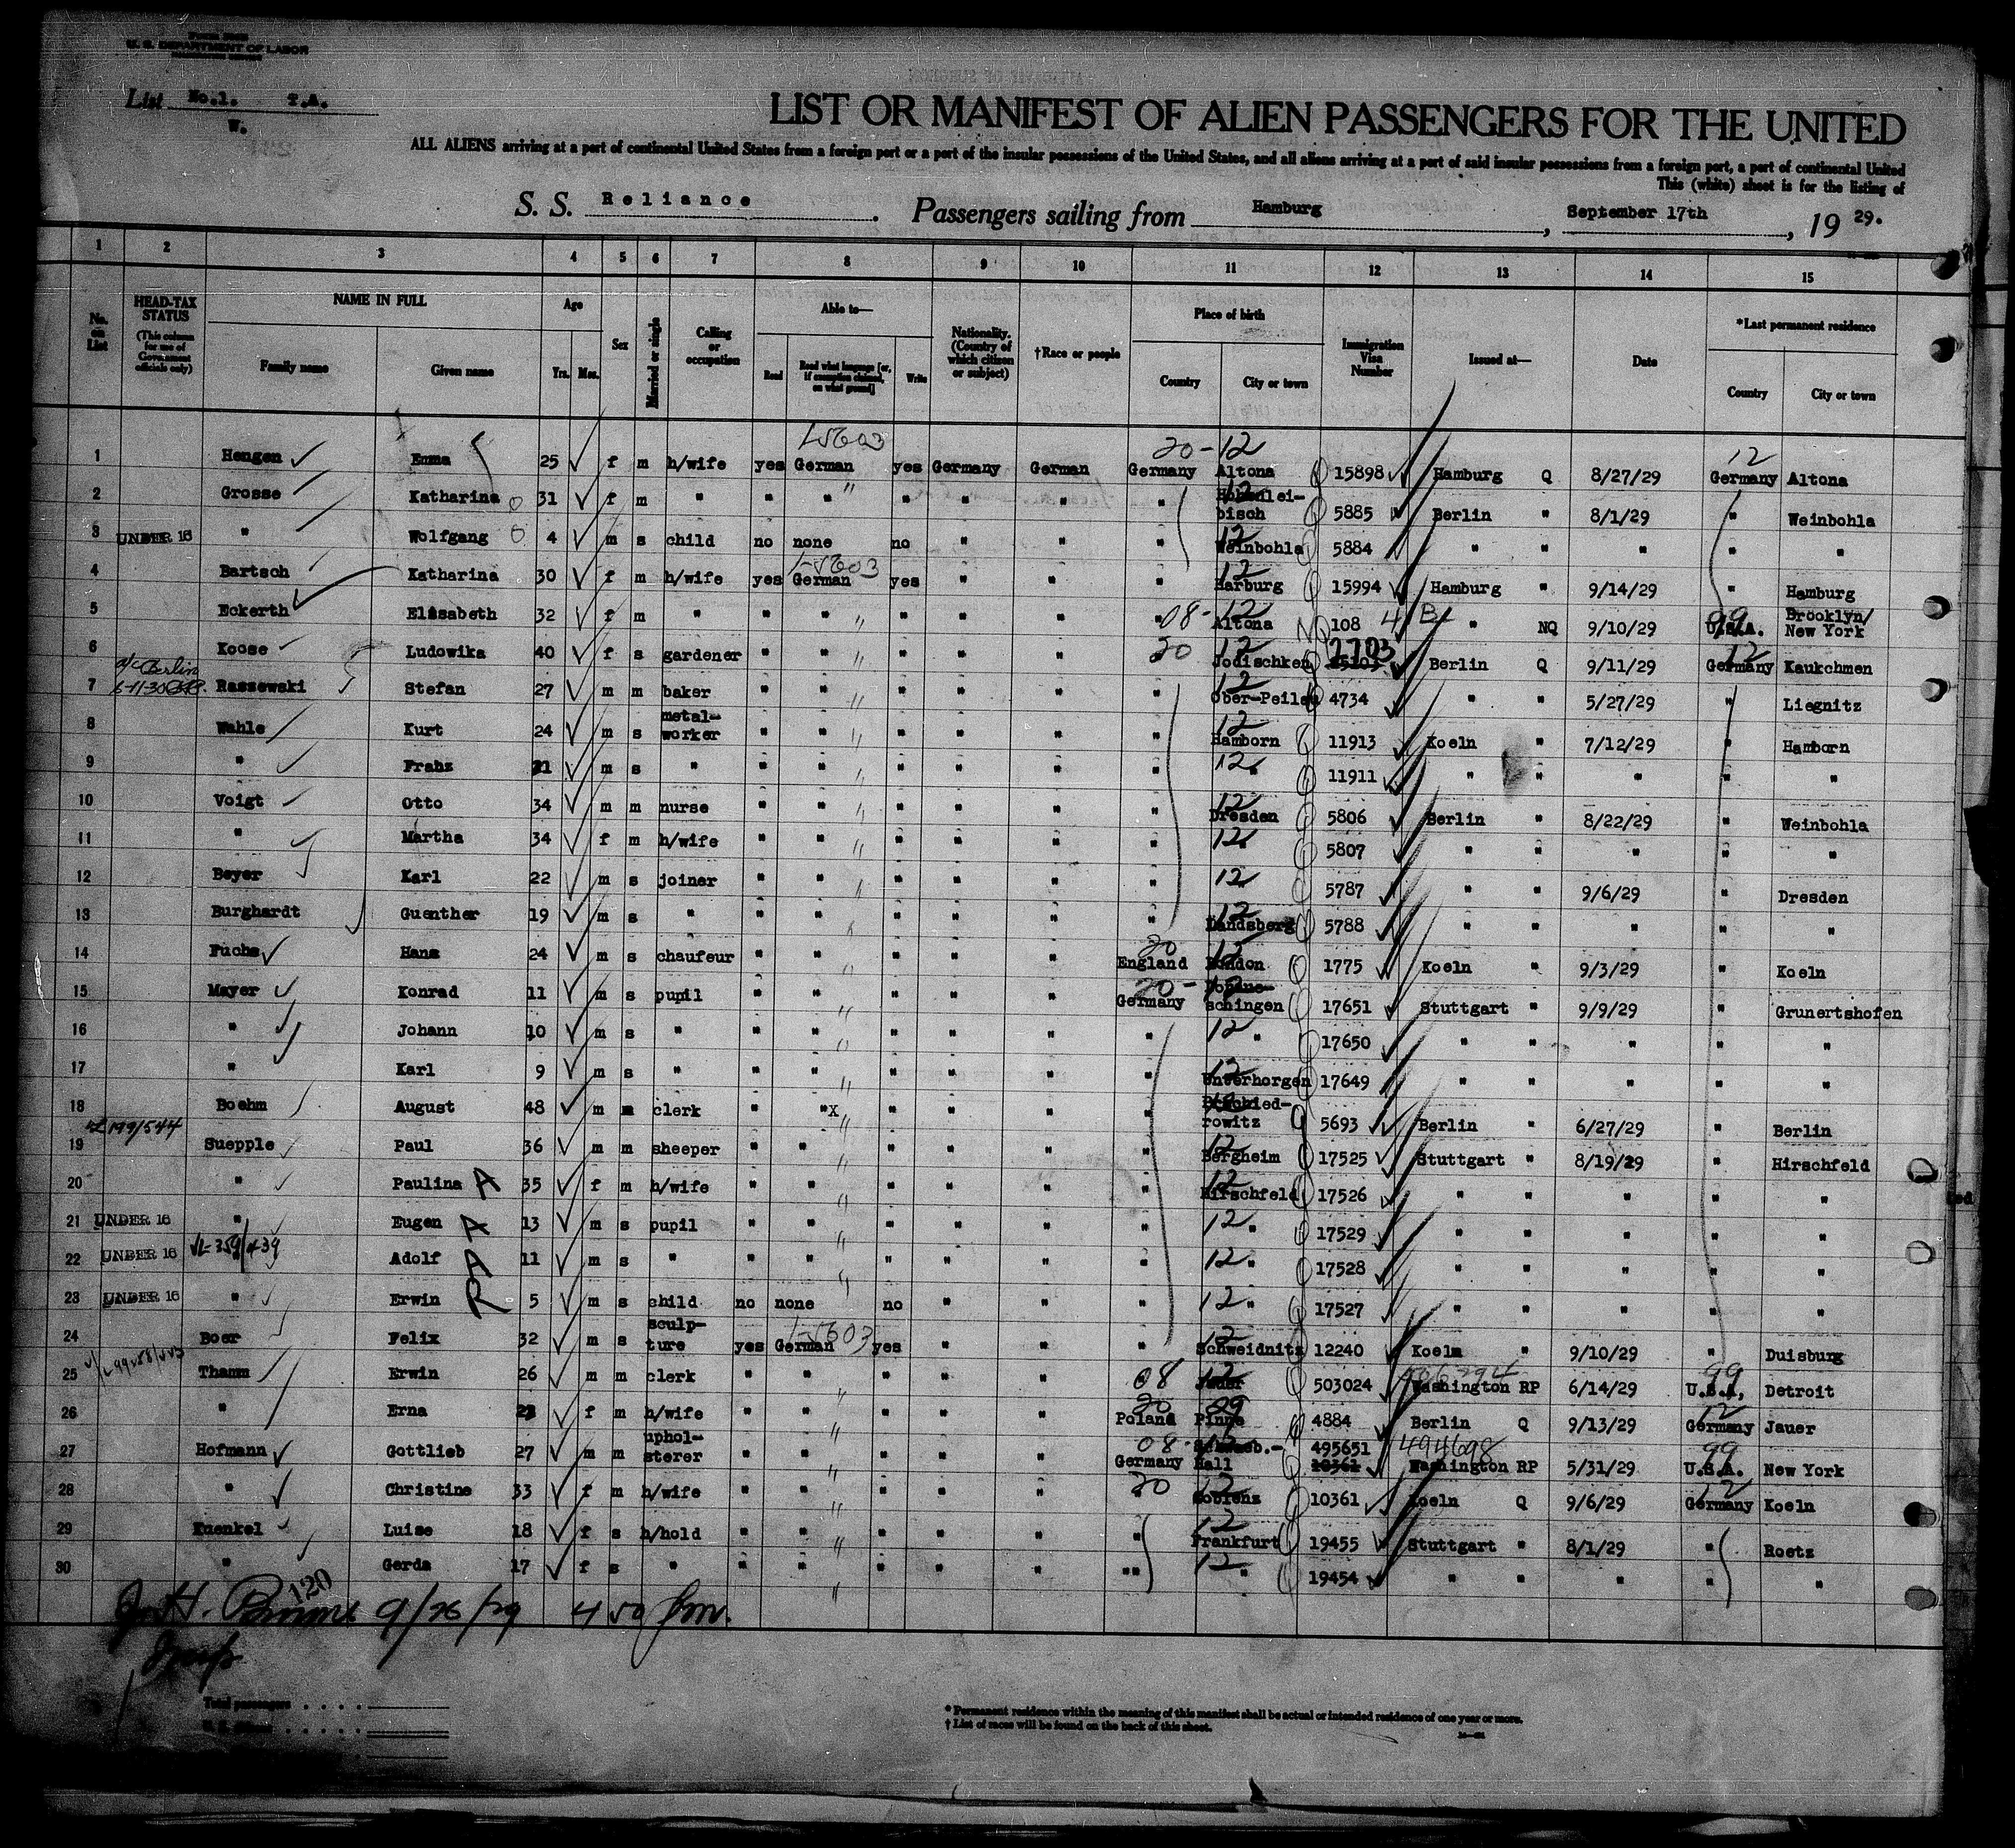 U. S. DEPARTMENT OF LABOR
List No.1. T.A.
W.
LIST OR MANIFEST OF ALIEN PASSENGERS FOR THE UNITED
ALL ALIENS arriving at a port of continental United States from a foreign port or a port of the insular possessions of the United States, and all aliens arriving at a port of said insular possessions from a foreign port, a port of continental United
This (white) sheet is for the listing of
S. S. Reliance. Passengers sailing from Hamburg, September 17th, 19 29.
1 2 3 4 5 6 7 8 9 10 11 12 13 14 15
No. on List
HEAD-TAX STATUS (This column for use of Government officials only)
NAME IN FULL
Family name Given name
Age Yrs. Mos.
Sex
Married or single
Calling or occupation
Able to—
Read Read what language [or, if exemption claimed, on what ground] Write
Nationality. (Country of which citizen or subject)
†Race or people
Place of birth
Country City or town
Immigration Visa Number
Issued at—
Date
*Last permanent residence
Country City or town
1 Hengen Emma 25 f m h/wife yes German yes Germany German Germany Altona 15898 Hamburg Q 8/27/29 Germany Altona
2 Grosse Katharina 31 f m " " " " " " " Hohenlei-bisch 5885 Berlin " 8/1/29 " Weinbohla
3 UNDER 16 " Wolfgang 4 m s child no none no " " " Weinbohla 5884 " " " " "
4 Bartsch Katharina 30 f m h/wife yes German yes " " " Harburg 15994 Hamburg " 9/14/29 " Hamburg
5 Eckerth Elisabeth 32 f m " " " " " " " Altona 108 " NQ 9/10/29 U.S.A. Brooklyn/ New York
6 Koose Ludowika 40 f s gardener " " " " " " Jodischken 2703 Berlin Q 9/11/29 Germany Kaukchmen
7 Rassewski Stefan 27 m m baker " " " " " " Ober-Peilau 4734 " " 5/27/29 " Liegnitz
8 Wahle Kurt 24 m s metal-worker " " " " " " Hamborn 11913 Koeln " 7/12/29 " Hamborn
9 " Franz 21 m s " " " " " " " " 11911 " " " " "
10 Voigt Otto 34 m m nurse " " " " " " Dresden 5806 Berlin " 8/22/29 " Weinbohla
11 " Martha 34 f m h/wife " " " " " " " 5807 " " " " "
12 Beyer Karl 22 m s joiner " " " " " " " 5787 " " 9/6/29 " Dresden
13 Burghardt Guenther 19 m s " " " " " " " Landsberg 5788 " " " " "
14 Fuchs Hans 24 m s chaufeur " " " " " England London 1775 Koeln " 9/3/29 " Koeln
15 Mayer Konrad 11 m s pupil " " " " " Germany schingen 17651 Stuttgart " 9/9/29 " Grunertshofen
16 " Johann 10 m s " " " " " " " " 17650 " " " " "
17 " Karl 9 m s " " " " " " " Unterhorgen 17649 " " " " "
18 Boehm August 48 m m clerk " "x " " " " rowitz 5693 Berlin " 6/27/29 " Berlin
19 Suepple Paul 36 m m sheeper " " " " " " Bergheim 17525 Stuttgart " 8/19/29 " Hirschfeld
20 " Paulina 35 f m h/wife " " " " " " Hirschfeld 17526 " " " " "
21 UNDER 16 " Eugen 13 m s pupil " " " " " " " 17529 " " " " "
22 UNDER 16 Adolf 11 m s " " " " " " " " 17528 " " " " "
23 UNDER 16 " Erwin 5 m s child no none no " " " " 17527 " " " " "
24 Boer Felix 32 m s sculp-ture yes German yes " " " Schweidnitz 12240 Koeln " 9/10/29 " Duisburg
25 Thamm Erwin 26 m m clerk " " " " " " Jauer 503024 Washington RP 6/14/29 U.S.A. Detroit
26 " Erna 23 f m h/wife " " " " " Poland Pinne 4884 Berlin Q 9/13/29 Germany Jauer
27 Hofmann Gottlieb 27 m m uphol-sterer " " " " " Germany Hall 495651 10361 494698 Washington RP 5/31/29 U.S.A. New York
28 " Christine 33 f m h/wife " " " " " " Coblenz 10361 Koeln Q 9/6/29 Germany Koeln
29 Kuenkel Luise 18 f s h/hold " " " " " " Frankfurt 19455 Stuttgart " 8/1/29 " Roetz
30 " Gerda 17 f s " " " " " " "" " 19454 " " " " "
120
9/26/29 4 50
Total passengers
* Permanent residence within the meaning of this manifest shall be actual or intended residence of one year or more.
† List of races will be found on the back of this sheet.